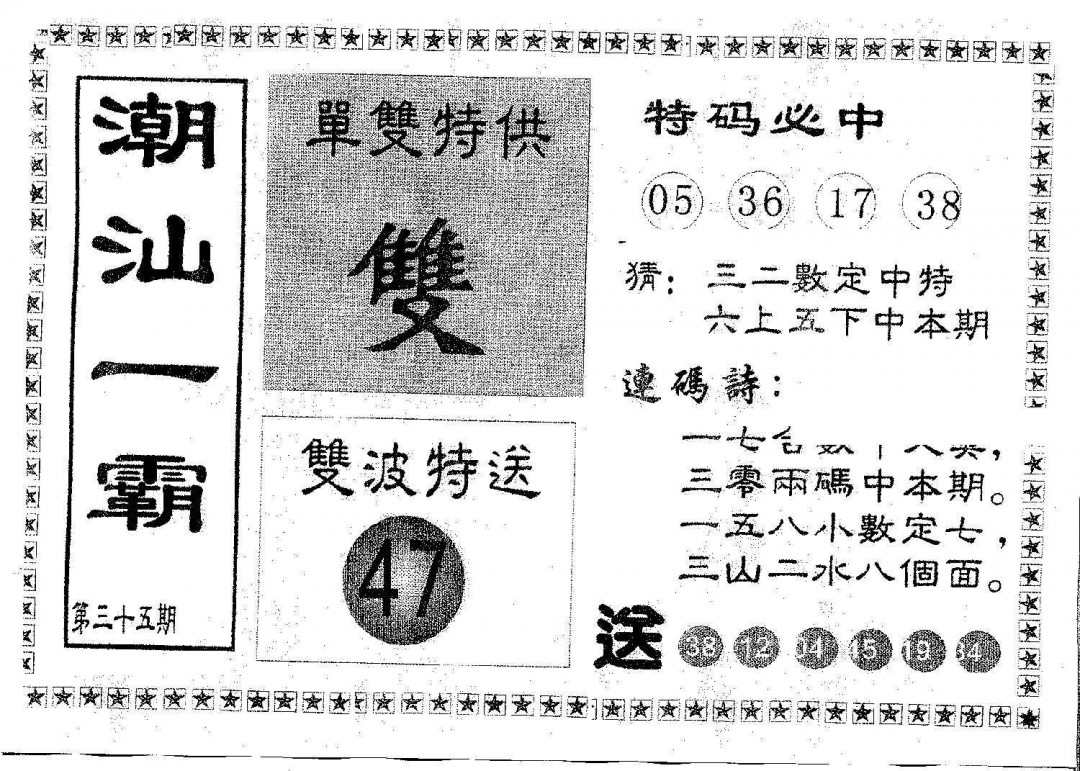 潮汕一霸
第三十五期
單雙特供
雙
雙波特送
47
特码必中
05 36 17 38
猜：三二數定中特
六上五下中本期
連碼詩：
一七合數
三零兩碼中本期。
一五八小數定七，
三山二水八個面。
送 38 12 04 15 19 34